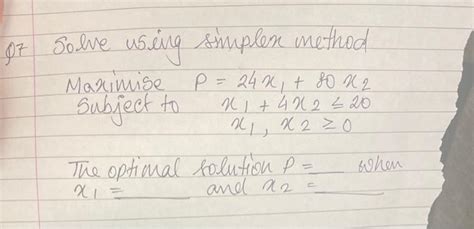 Q7 Solve using simplex method
Maximise P = 24x₁ + 80x₂
Subject to x₁ + 4x₂ ≤ 20
x₁, x₂ ≥ 0
The optimal solution P = __ when
x₁ = ____ and x₂ = ____